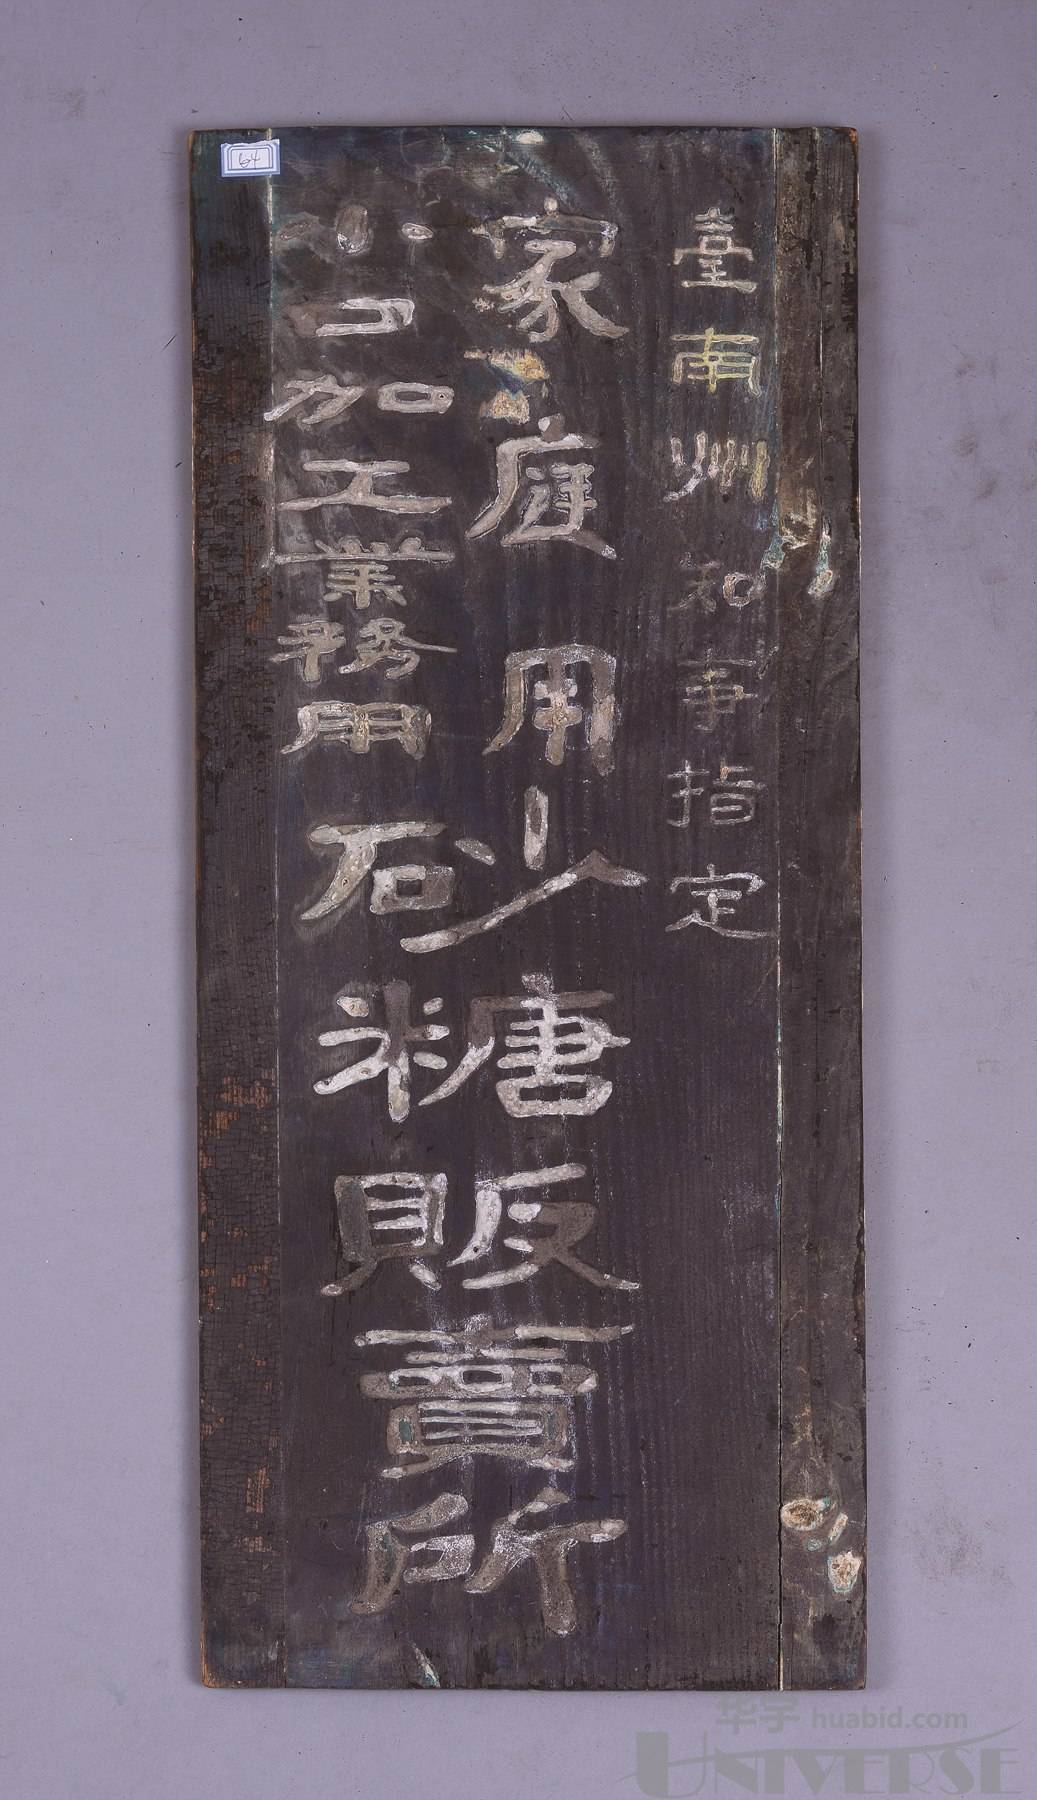 臺南州知事指定
家庭用
小口加工業務用
砂糖販賣所
64
华宇 huabid.com
UNIVERSE